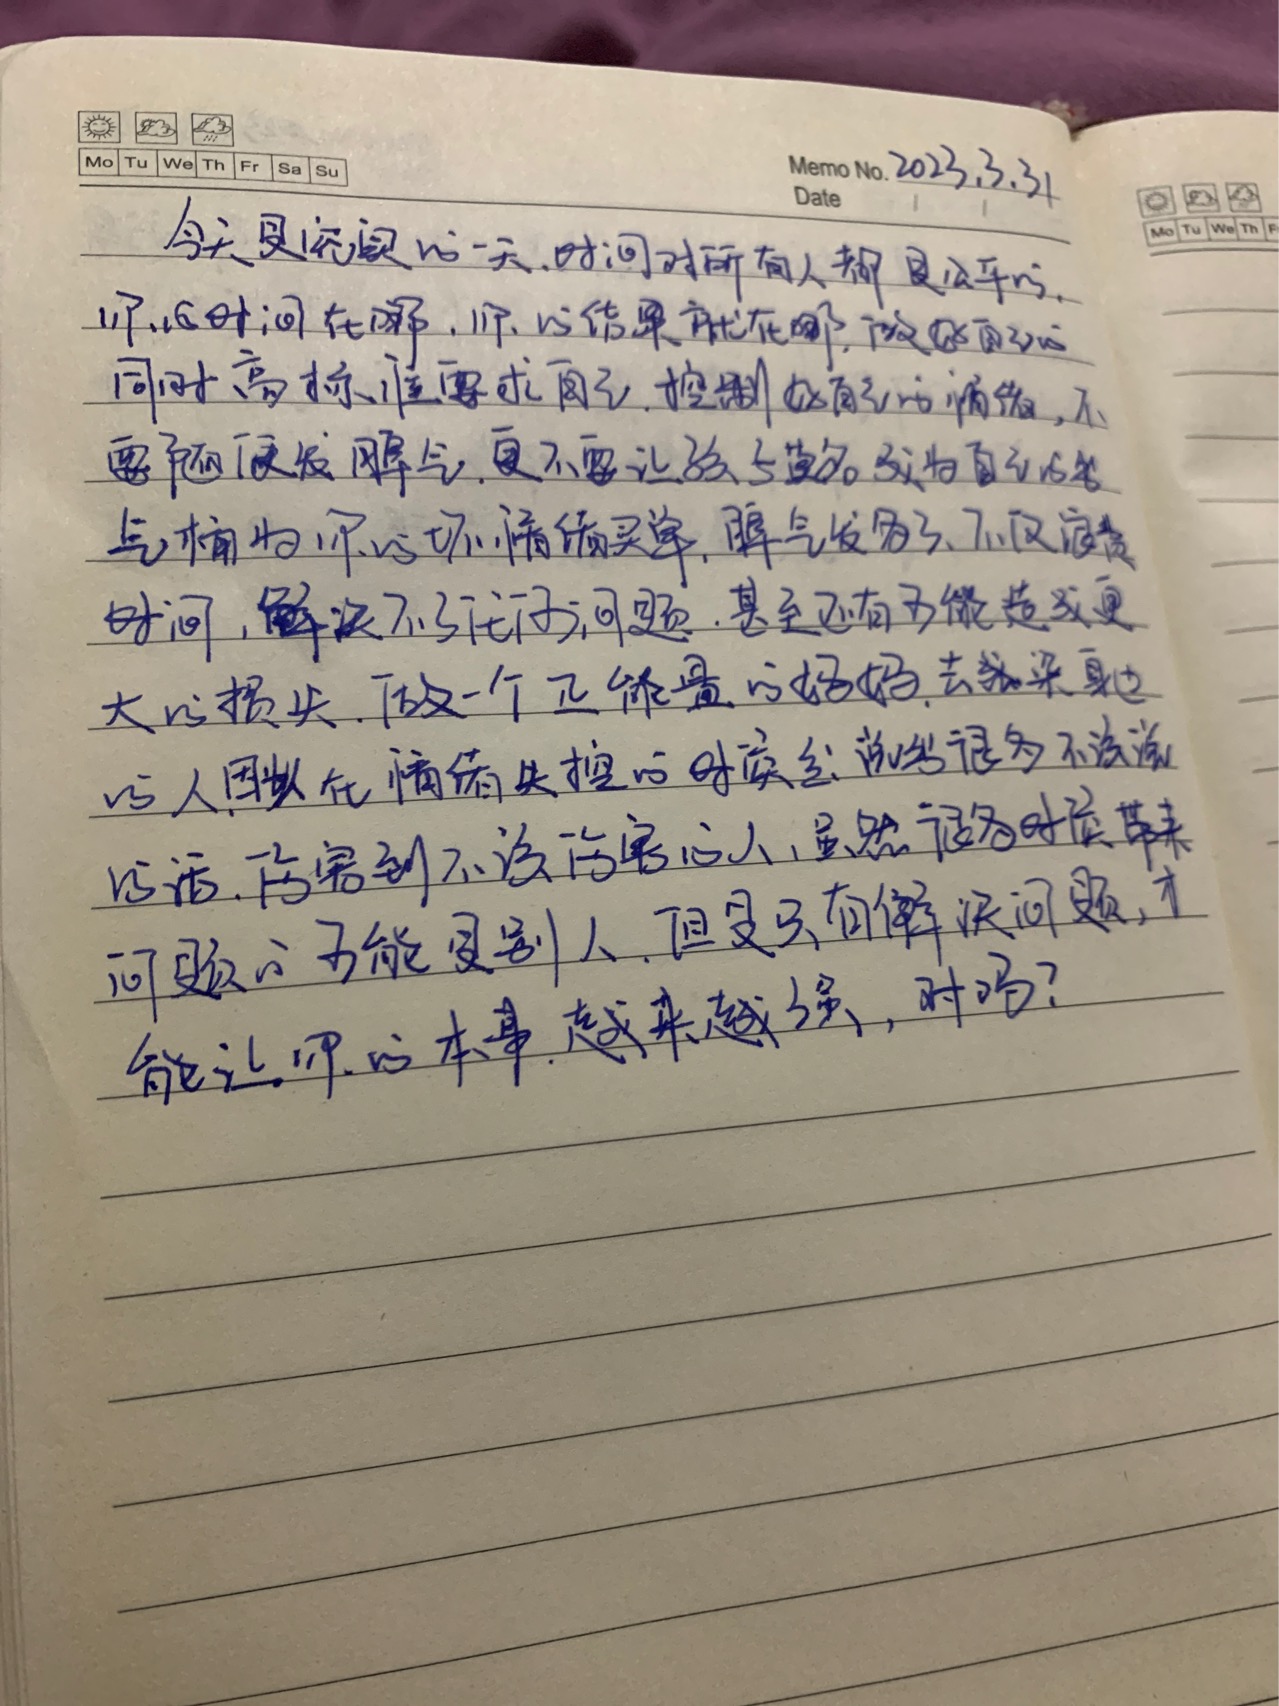 Mo Tu We Th Fr Sa Su
Memo No. 2023.3.31
Date
今天是充实的一天,时间对所有人都是公平的,
你的时间在哪,你的结果就在哪,做好自己的
同时高标准要求自己,控制好自己的情绪,不
要随便发脾气,更不要让孩与成为自己的出
气桶为你的坏情绪买单,脾气发多了,不仅浪费
时间,解决不了任何问题,甚至还有可能造成更
大的损失,做一个正能量的妈妈,去感染身边
的人,因为在情绪失控的时候会说出很多不该说
的话,伤害到不该伤害的人,虽然很多时候带来
问题的可能是别人,但是只有解决问题,才
能让你的本事,越来越强,对吗?
Mo Tu We Th F